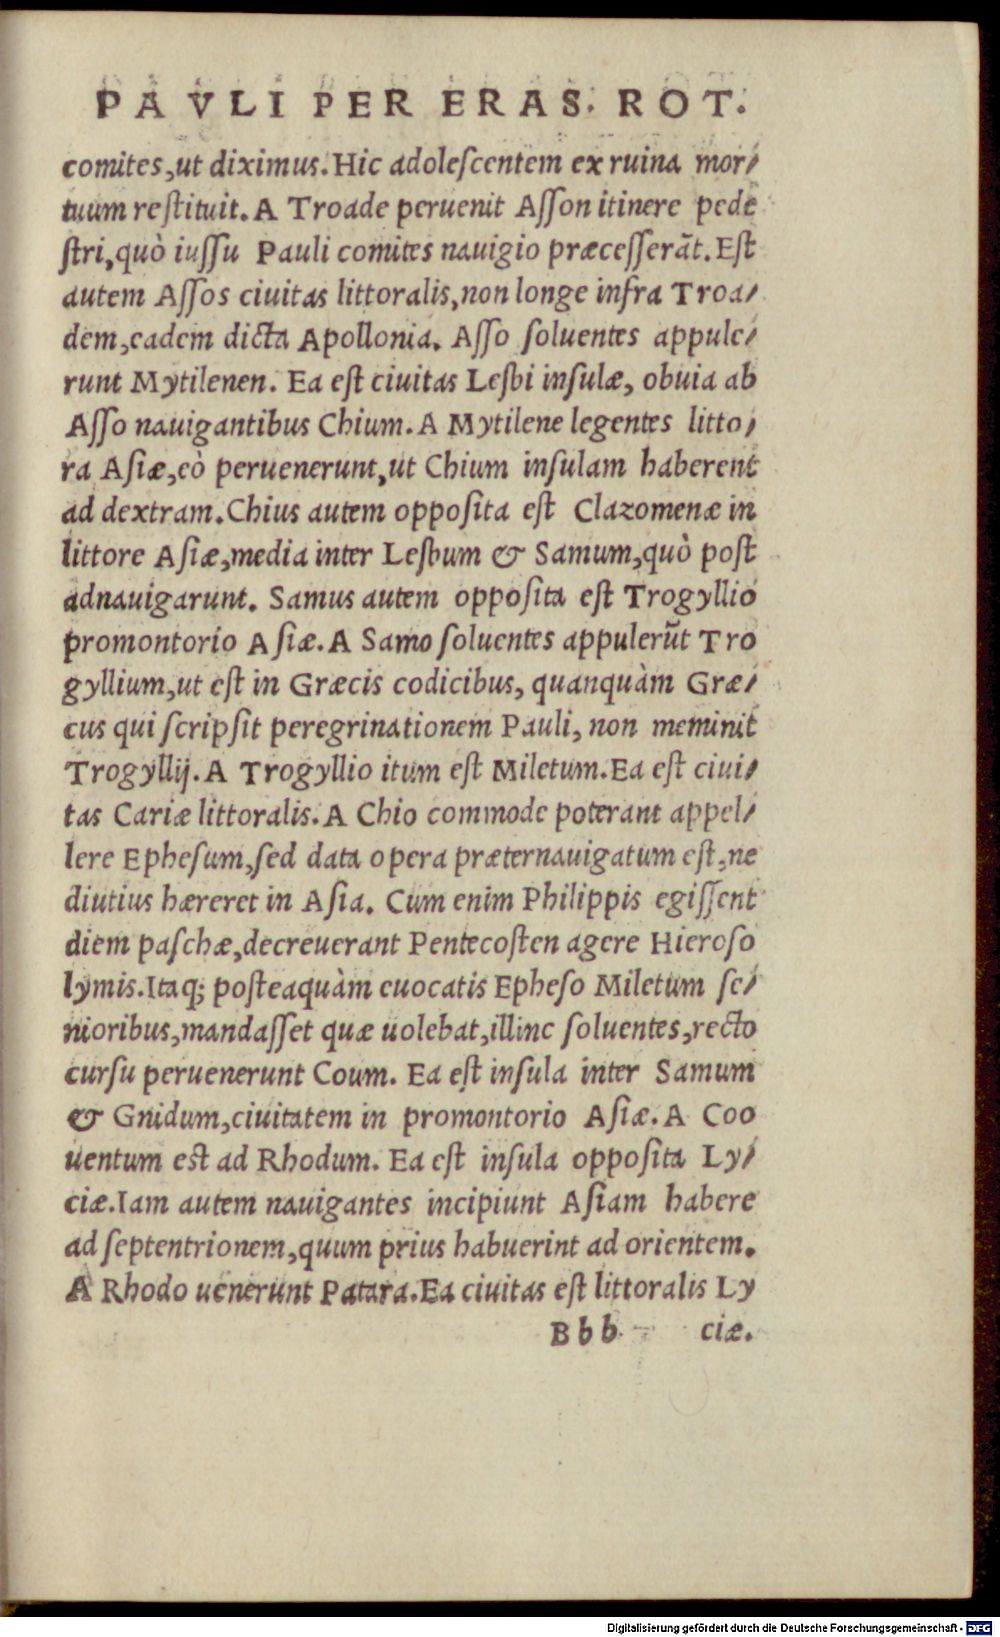 PAVLI PER ERAS. ROT.
comites, ut diximus. Hic adolescentem ex ruina mor/
tuum restituit. A Troade peruenit Asson itinere pede
stri, quò iussu Pauli comites nauigio præcesserāt. Est
autem Assos ciuitas littoralis, non longe infra Troa/
dem, eadem dicta Apollonia. Asso soluentes appule/
runt Mytilenen. Ea est ciuitas Lesbi insulæ, obuia ab
Asso nauigantibus Chium. A Mytilene legentes litto/
ra Asiæ, eò peruenerunt, ut Chium insulam haberent
ad dextram. Chius autem opposita est Clazomenæ in
littore Asiæ, media inter Lesbum & Samum, quò post
adnauigarunt. Samus autem opposita est Trogyllio
promontorio Asiæ. A Samo soluentes appulerūt Tro
gyllium, ut est in Græcis codicibus, quanquàm Græ/
cus qui scripsit peregrinationem Pauli, non meminit
Trogyllij. A Trogyllio itum est Miletum. Ea est ciui/
tas Cariæ littoralis. A Chio commode poterant appel/
lere Ephesum, sed data opera præternauigatum est, ne
diutius hæreret in Asia. Cum enim Philippis egissent
diem paschæ, decreuerant Pentecosten agere Hieroso
lymis. Itaq; posteaquàm euocatis Epheso Miletum se/
nioribus, mandasset quæ uolebat, illinc soluentes, recto
cursu peruenerunt Coum. Ea est insula inter Samum
& Gnidum, ciuitatem in promontorio Asiæ. A Coo
uentum est ad Rhodum. Ea est insula opposita Ly/
ciæ. Iam autem nauigantes incipiunt Asiam habere
ad septentrionem, quum prius habuerint ad orientem.
A Rhodo uenerunt Patara. Ea ciuitas est littoralis Ly
Bbb ciæ.
Digitalisierung gefördert durch die Deutsche Forschungsgemeinschaft - DFG